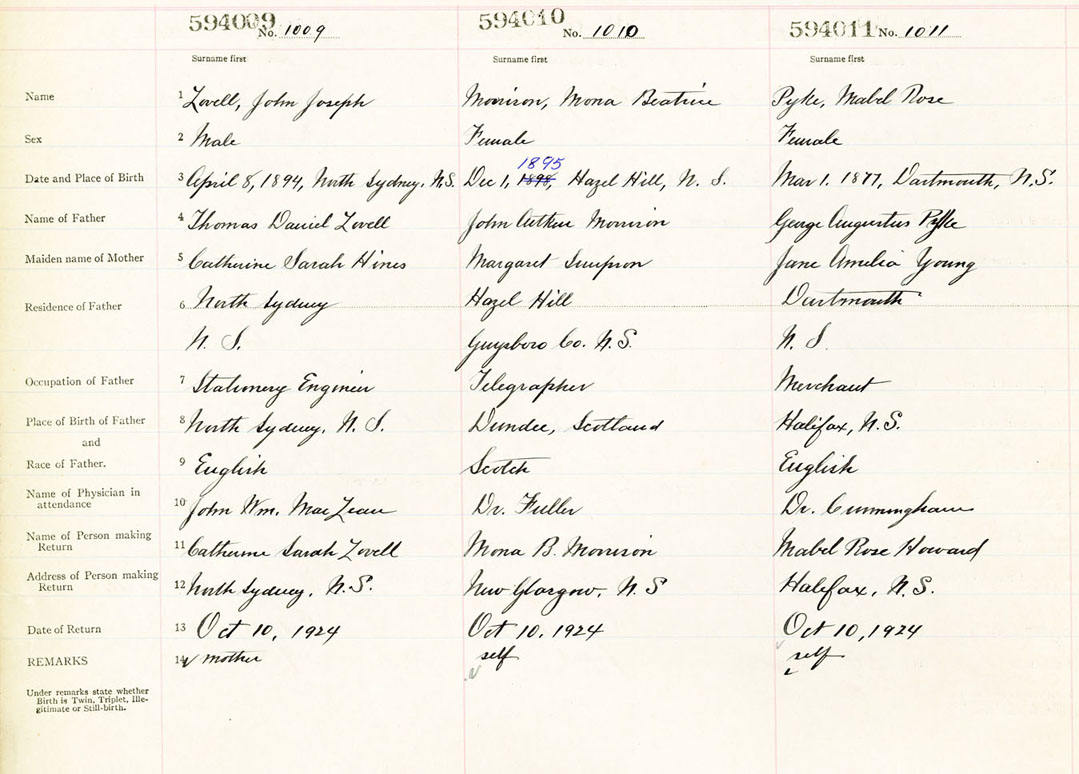 594009 No. 1009 594010 No. 1010 594011 No. 1011
Surname first Surname first Surname first
Name 1 Lovell, John Joseph Morrison, Mona Beatrice Pyke, Mabel Rose
Sex 2 Male Female Female
1895
Date and Place of Birth 3 April 8, 1894, North Sydney, N.S. Dec 1, 1898, Hazel Hill, N. S. Mar 1. 1877, Dartmouth, N.S.
Name of Father 4 Thomas Daniel Lovell John Aitken Morrison George Augustus Pyke
Maiden name of Mother 5 Catherine Sarah Hines Margaret Simpson Jane Amelia Young
Residence of Father 6 North Sydney Hazel Hill Dartmouth
N. S. Guysboro Co. N.S. N. S.
Occupation of Father 7 Stationery Engineer Telegrapher Merchant
Place of Birth of Father 8 North Sydney, N. S. Dundee, Scotland Halifax, N.S.
and
Race of Father. 9 English Scotch English
Name of Physician in
attendance 10 John Wm. MacLean Dr. Fuller Dr. Cunningham
Name of Person making
Return 11 Catherine Sarah Lovell Mona B. Morrison Mabel Rose Howard
Address of Person making
Return 12 North Sydney, N.S. New Glasgow, N.S Halifax, N.S.
Date of Return 13 Oct 10, 1924 Oct 10, 1924 Oct 10, 1924
REMARKS 14 mother self self
Under remarks state whether
Birth is Twin, Triplet, Ille-
gitimate or Still-birth.